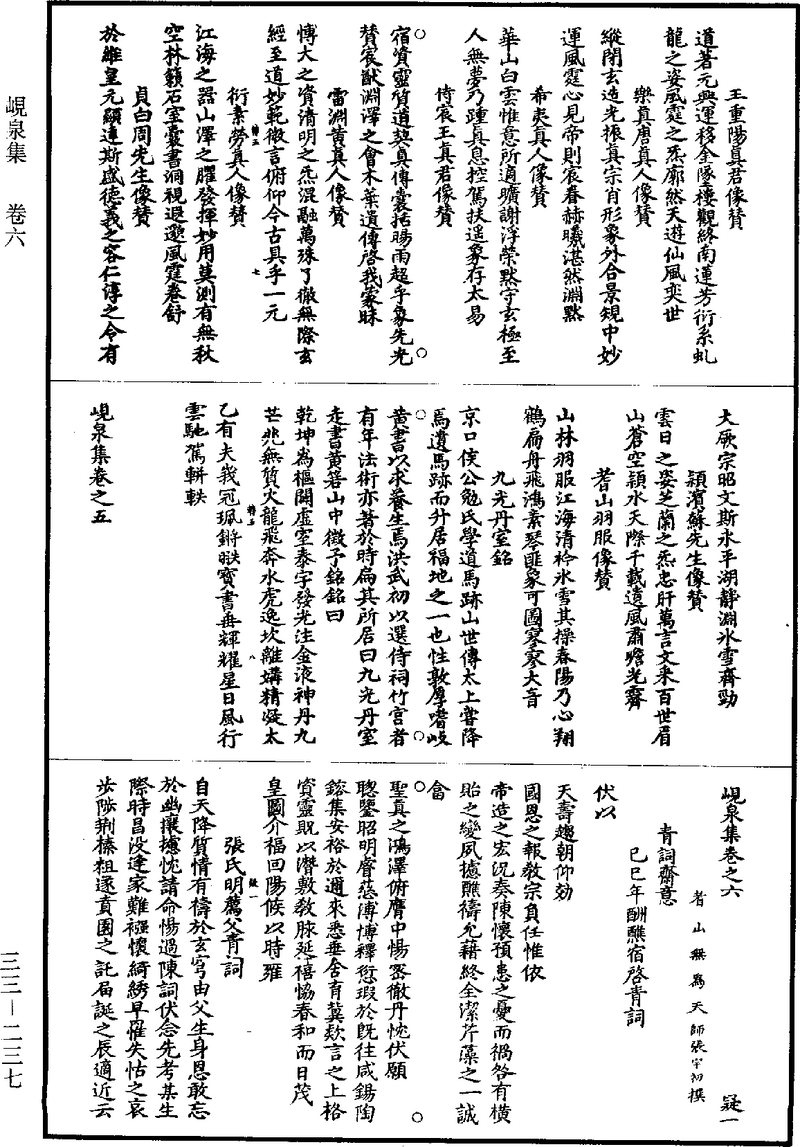 峴泉集 卷六
王重陽真君像贊
道著元興運移金墜樓觀終南蓮芳衍系虬
龍之姿風霆之炁廓然天遊仙風奕世
樂真唐真人像贊
縱閉玄造光振真宗肖形象外合景規中妙
運風霆心見帝則宸春赫曦湛然淵默
希夷真人像贊
華山白雲惟意所適曠謝浮榮默守玄極至
人無夢乃踵真息控駕扶遥象存太易
侍宸王真君像贊
宿資靈質道契真傳囊括暘雨超乎象先光
贊宸猷淵澤之會木葉遺傳啓我蒙昧
雷淵黃真人像贊
博大之資清明之炁混融萬殊了徹無際玄
經至道妙範徵言俯仰今古具乎一元
衍素勞真人像贊
江海之器山澤之臞發揮妙用莫測有無秋
空林籟石室囊書洞視遐邈風霆卷舒
貞白周先生像贊
於維皇元顯連斯盛德義之容仁淳之令有
大厥宗昭文斯永平湖靜淵氷雪齊勁
潁濱蘇先生像贊
雲日之姿芝蘭之炁忠肝萬言文釆百世眉
山蒼空潁水天際千載遺風肅瞻光霽
耆山羽服像贊
山林羽服江海清衿氷雪其操春陽乃心翔
鶴扁舟飛鴻素琴匪象可圖寥寥大音
九光丹室銘
京口侯公勉氏學道馬跡山世傳太上嘗降
馬遺馬跡而升居福地之一也性敦厚嗜岐
黃書以求養生焉洪武初以選侍祠竹宮者
有年法術亦著於時扁其所居曰九光丹室
走書黃箬山中徵予銘銘曰
乾坤為樞闢虛室泰宇發光注金液神丹九
芒兆無質火龍飛奔水虎逸坎離媾精凝太
乙有夫峩冠珮鏘昳寶書垂輝耀星日風行
雲馳駕軿軼
峴泉集卷之五
峴泉集卷之六 疑一
耆山無為天師張宇初撰
青詞齋意
己巳年酬醮宿啓青詞
伏以
天壽趨朝仰効
國恩之報敎宗負任惟依
帝造之宏況奏陳懷預患之憂而禍咎有橫
貽之變夙攄醮禱允藉終全潔芹藻之一誠
會
聖真之鴻澤俯膺中惕寀徹丹忱伏願
聰鑒昭明膺慈溥博釋愆瑕於旣往咸錫陶
鎔集安裕於邇來悉垂含育冀欵言之上格
資靈貺以潛敷敎脉延禧恊春和而日茂
皇圖介福囬陽候以時雍
張氏明薦父青詞
自天降質情有禱於玄穹由父生身恩敢忘
於幽壤攄忱請命惕過陳詞伏念先考某生
際時昌没逢家難襁懷綺綉早罹失怙之哀
步陟荆榛祖遂賁園之託屆誕之辰適近云
三三－二三七